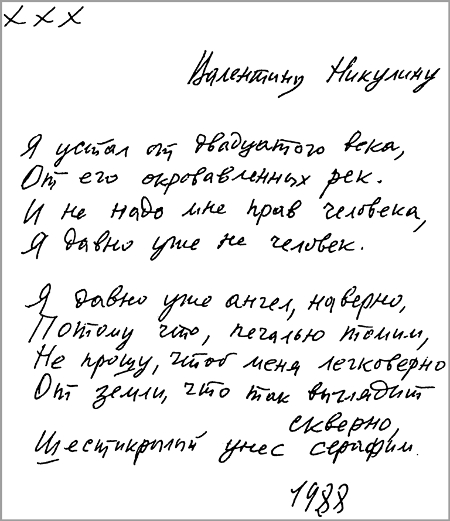 х х х
Валентину Никулину
Я устал от двадцатого века,
От его окровавленных рек.
И не надо мне прав человека,
Я давно уже не человек.
Я давно уже ангел, наверно,
Потому что, печалью томим,
Не прошу, чтоб меня легковерно
От земли, что так выглядит
скверно,
Шестикрылый унес серафим.
1988